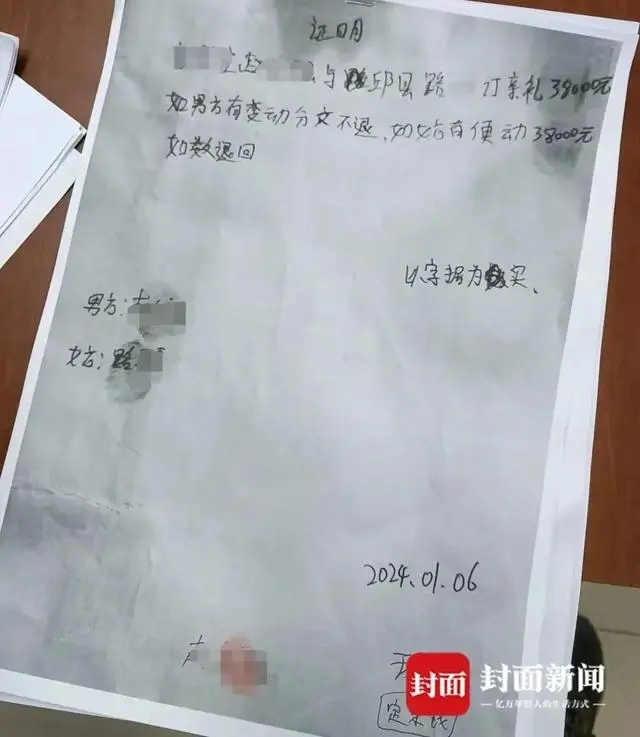 证明
与邱县路 订亲礼38000元
如男方有变动分文不退,如女方有便动38000元
如数退回
以字据为买、
男方:
女方:路
2024.01.06
封面 封面新闻
亿万年轻人的生活方式